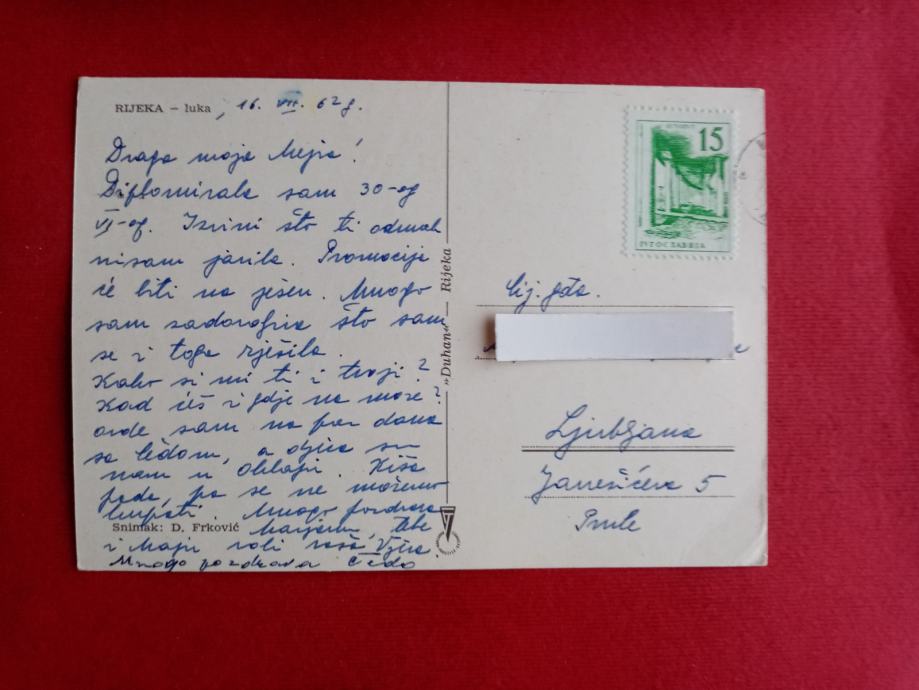 RIJEKA – luka, 16. VII. 62 g.
Draga moja Mejra!
Diplomirala sam 30-og
VI-og. Izvini što ti odmah
nisam javila. Promocija
će biti na jesen. Mnogo
sam zadovoljna što sam
se i toga rješila.
Kako si mi ti i tvoji?
Kad ćeš i gdje na more?
Ovde sam na par dana
sa Čedom, a djeca su
nam u Ohlaji. Kiša
pada, pa se ne možemo
kupati. Mnogo pozdrava
Snimak: D. Frković
Marijanu, tebe
i Maju voli vaša Vjera.
Mnogo pozdrava Čedo
»Duhan« — Rijeka
15
JUGOSLAVIJA
Cij. gđa.
Ljubljana
Janežićeva 5
Prule